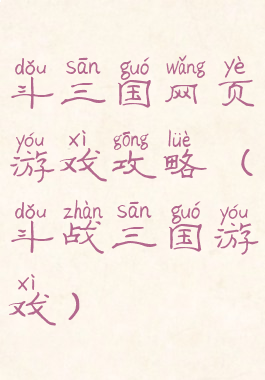 dǒu sān guó wǎng yè
斗三国网页
yóu xì gōng lüè
游戏攻略（
dǒu zhàn sān guó yóu
斗战三国游
xì
戏）